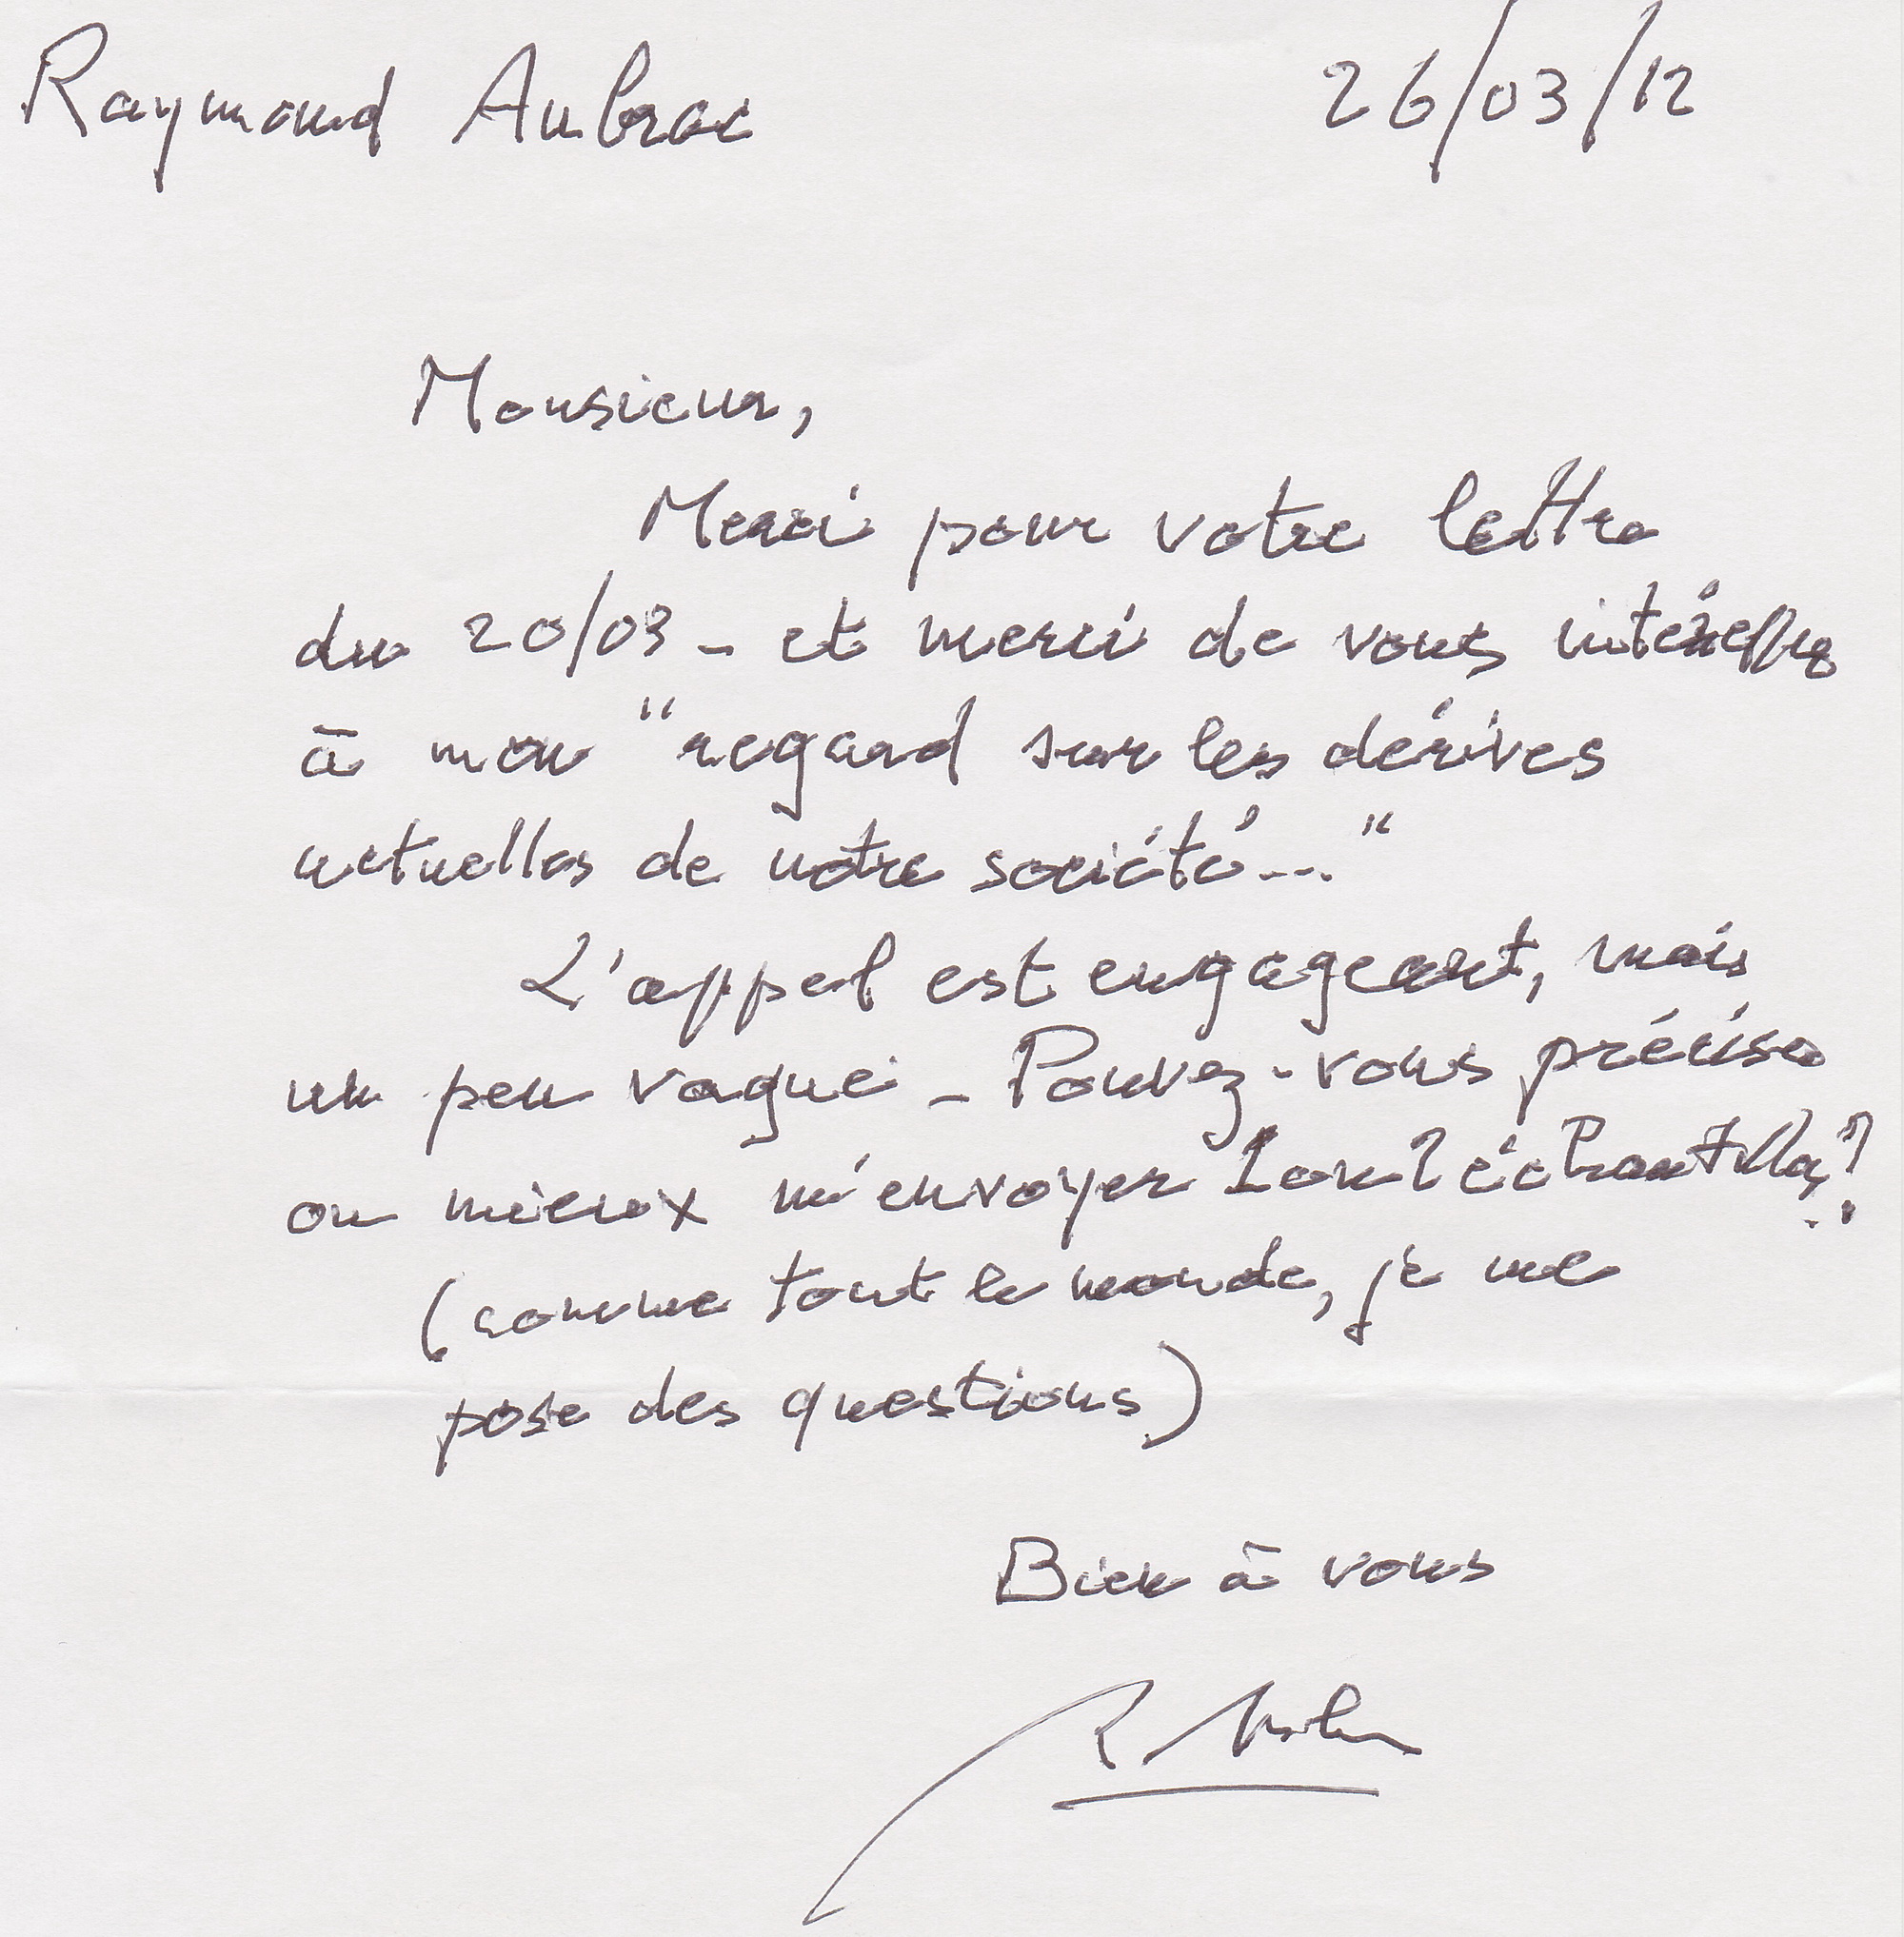 Raymond Aubrac 26/03/12
Monsieur,
Merci pour votre lettre
du 20/03 - et merci de vous intéresser
à mon "regard sur les dérives
actuelles de notre société..."
L'appel est engageant, mais
un peu vague - Pouvez-vous préciser
ou mieux m'envoyer 1 ou 2 échantillons?
(comme tout le monde, je me
pose des questions)
Bien à vous